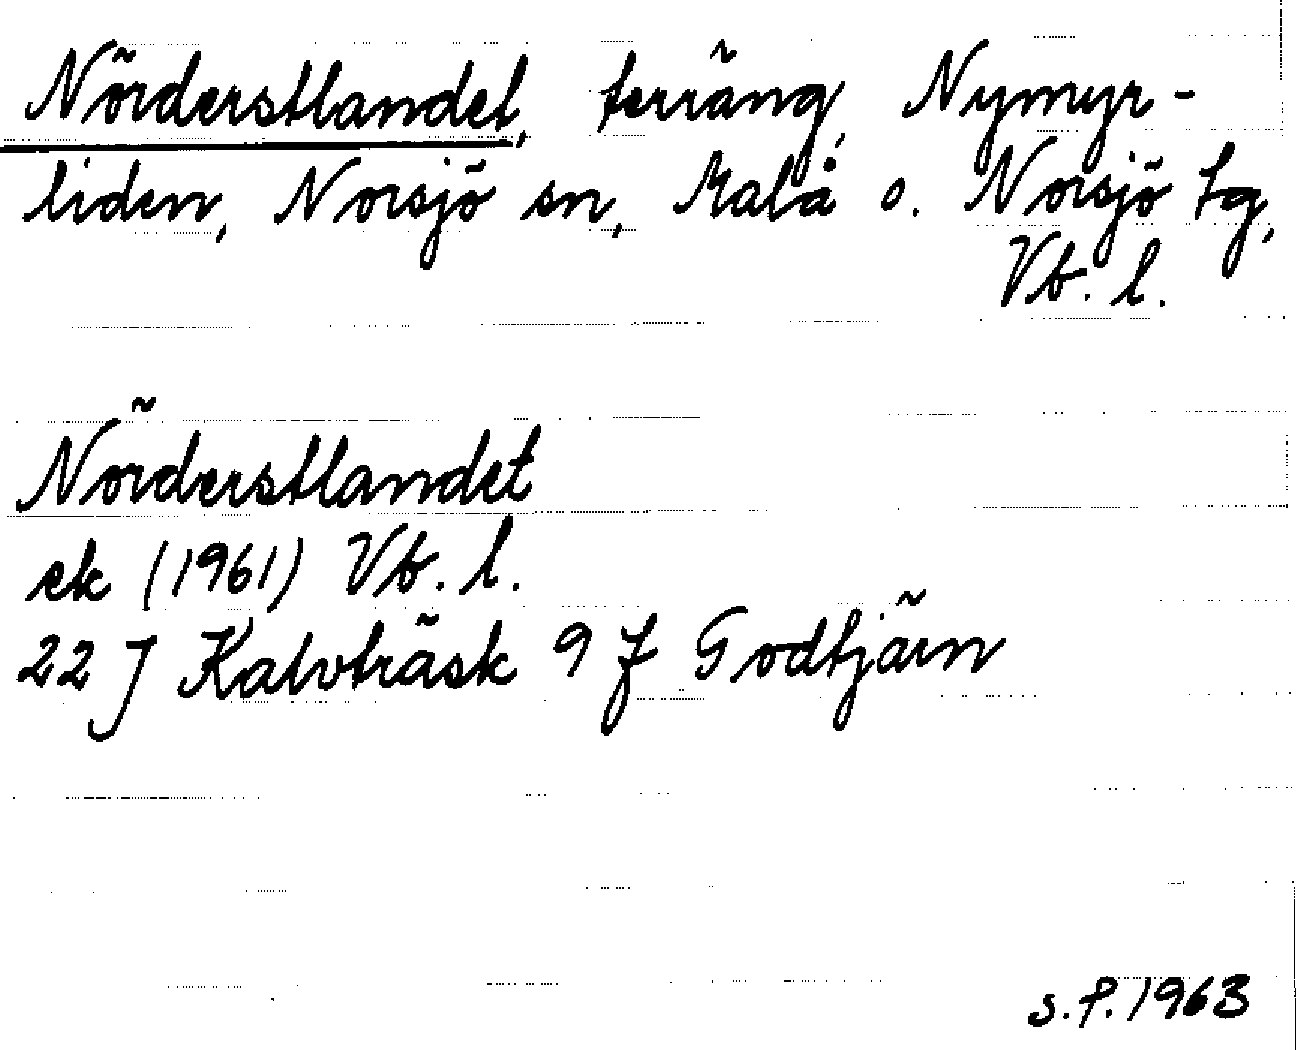 Nörderstlandet, terräng, Nymyr-
liden, Norsjö sn, Malå o. Norsjö tg,
Vb. l.
Nörderstlandet
ek (1961) Vb. l.
22 J Kalvträsk 9 f Godtjärn
s.f. 1963